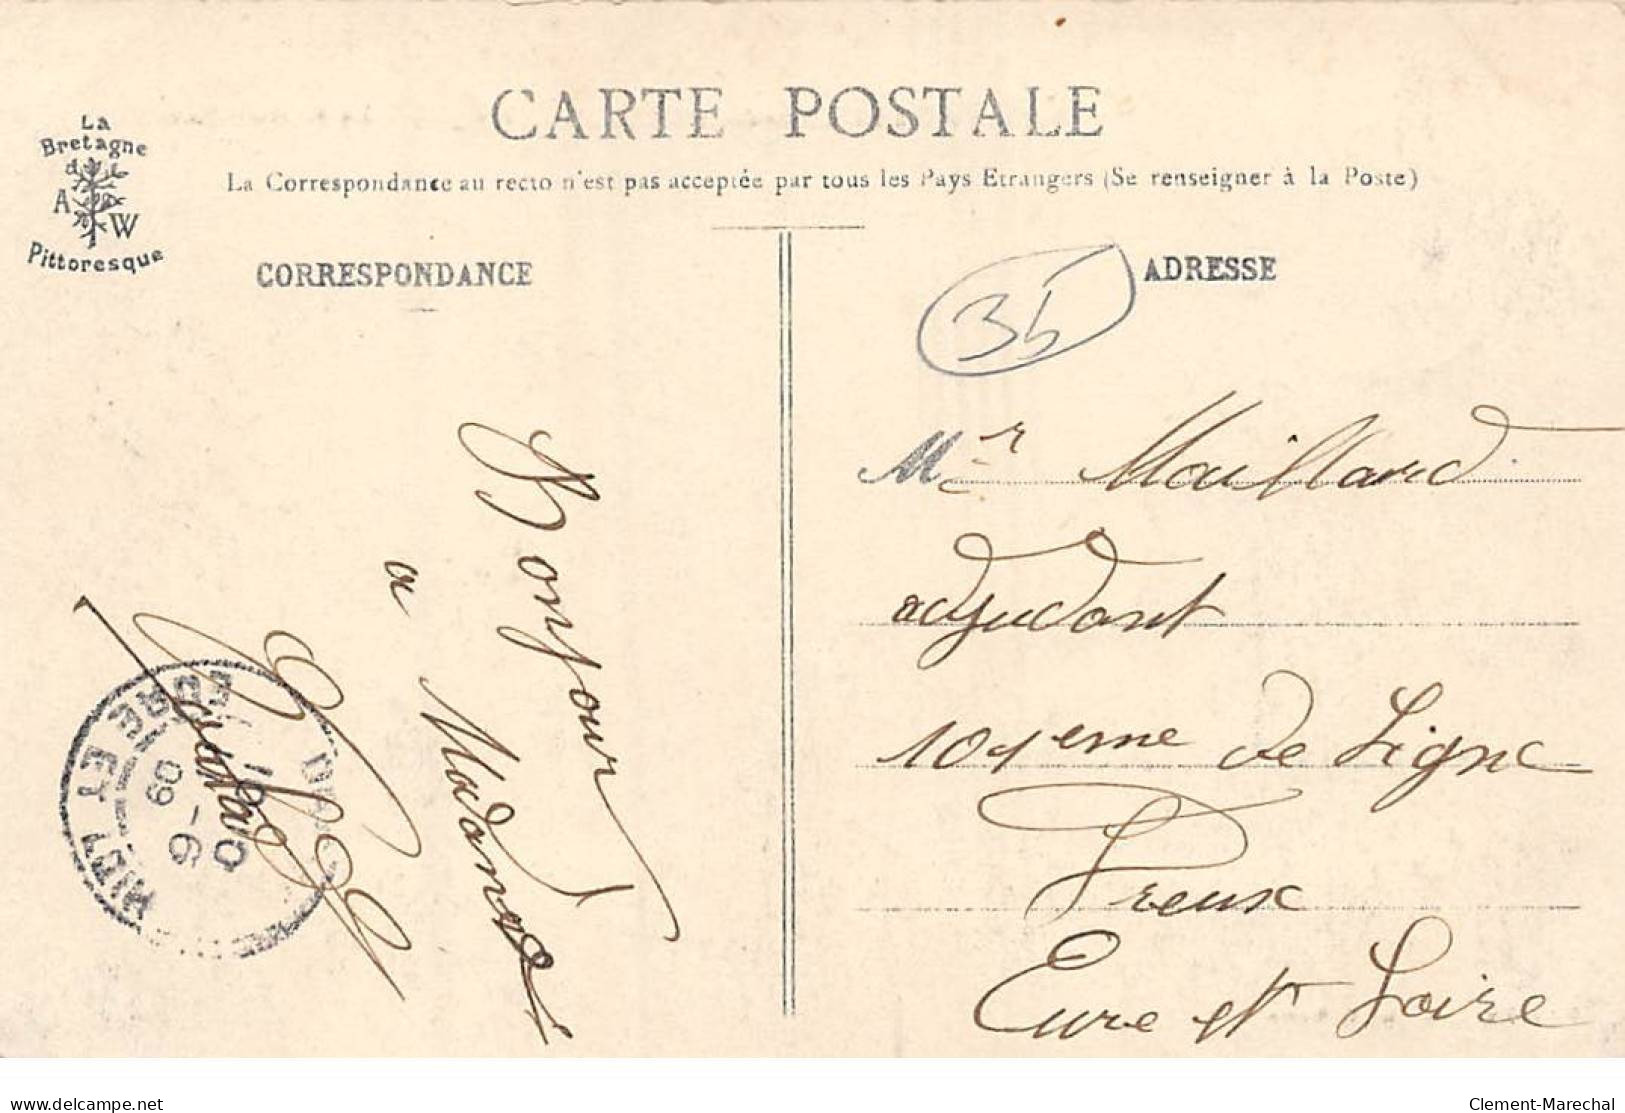 CARTE POSTALE
La
Bretagne
A W
Pittoresque
La Correspondance au recto n'est pas acceptée par tous les Pays Etrangers (Se renseigner à la Poste)
CORRESPONDANCE
ADRESSE
35
Bonjour
a Madame
Mr Maillard
adjudant
101eme de Ligne
Dreux
Eure et Loire
EURE ET LOIR
9-6
09
delcampe.net
Clement-Marechal